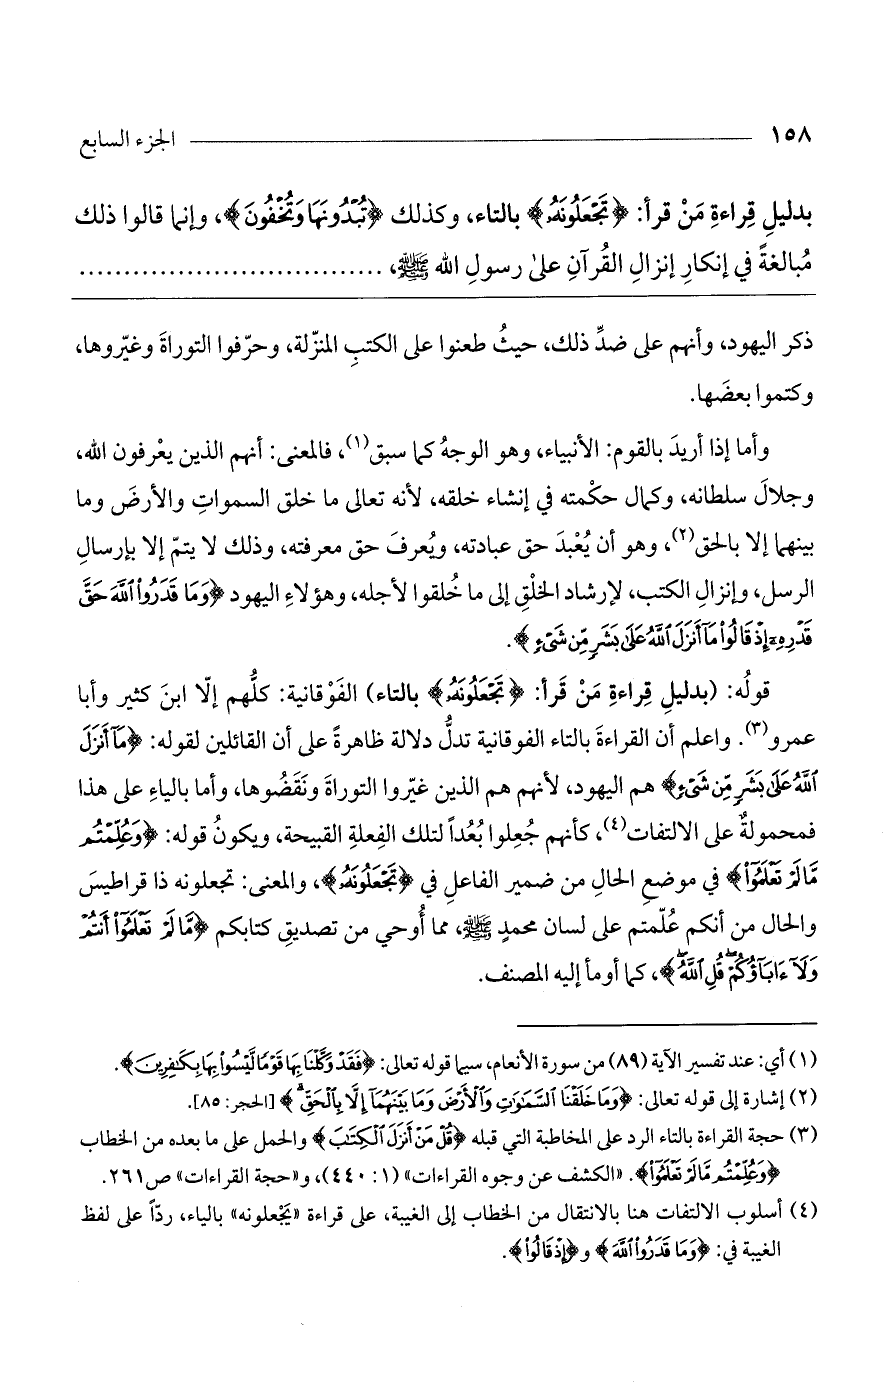 ١٥٨ الجزء السابع
بدليلِ قِراءةِ مَنْ قرأ: ﴿تَجْعَلُونَهُۥ﴾ بالتاء، وكذلك ﴿تُبْدُونَهَا وَتُخْفُونَ﴾، وإنما قالوا ذلك
مُبالغةً في إنكارِ إنزالِ القُرآنِ على رسولِ الله ﷺ، .................................
ذكر اليهود، وأنهم على ضدِّ ذلك، حيثُ طعنوا على الكتبِ المنزّلة، وحرّفوا التوراةَ وغيّروها،
وكتموا بعضَها.
وأما إذا أريدَ بالقوم: الأنبياء، وهو الوجهُ كما سبق(١)، فالمعنى: أنهم الذين يعْرفون الله،
وجلالَ سلطانه، وكمال حكْمته في إنشاء خلقه، لأنه تعالى ما خلق السمواتِ والأرضَ وما
بينهما إلا بالحق(٢)، وهو أن يُعْبدَ حق عبادته، ويُعرفَ حق معرفته، وذلك لا يتمّ إلا بإرسالِ
الرسل، وإنزالِ الكتب، لإرشاد الخلْقِ إلى ما خُلقوا لأجله، وهؤلاءِ اليهود ﴿وَمَا قَدَرُوا۟ ٱللَّهَ حَقَّ
قَدْرِهِۦٓ إِذْ قَالُوا۟ مَآ أَنزَلَ ٱللَّهُ عَلَىٰ بَشَرٍ مِّن شَىْءٍ﴾.
قولُه: (بدليلِ قِراءةِ مَنْ قَرأ: ﴿تَجْعَلُونَهُۥ﴾ بالتاء) الفَوْقانية: كلُّهم إلّا ابنَ كثير وأبا
عمرو(٣). واعلم أن القراءةَ بالتاء الفوقانية تدلُّ دلالة ظاهرةً على أن القائلين لقوله: ﴿مَآ أَنزَلَ
ٱللَّهُ عَلَىٰ بَشَرٍ مِّن شَىْءٍ﴾ هم اليهود، لأنهم هم الذين غيّروا التوراةَ ونَقَضُوها، وأما بالياءِ على هذا
فمحمولةٌ على الالتفات(٤)، كأنهم جُعِلوا بُعُداً لتلك الفِعلةِ القبيحة، ويكونُ قوله: ﴿وَعُلِّمْتُم
مَّا لَمْ تَعْلَمُوٓا۟﴾ في موضعِ الحالِ من ضمير الفاعلِ في ﴿تَجْعَلُونَهُۥ﴾، والمعنى: تجعلونه ذا قراطيسَ
والحال من أنكم عُلّمتم على لسان محمدٍ ﷺ، مما أُوحي من تصديقِ كتابكم ﴿مَّا لَمْ تَعْلَمُوٓا۟ أَنتُمْ
وَلَآ ءَابَآؤُكُمْ ۖ قُلِ ٱللَّهُ ۖ﴾، كما أومأ إليه المصنف.
(١) أي: عند تفسير الآية (٨٩) من سورة الأنعام، سيما قوله تعالى: ﴿فَقَدْ وَكَّلْنَا بِهَا قَوْمًا لَّيْسُوا۟ بِهَا بِكَـٰفِرِينَ﴾.
(٢) إشارة إلى قوله تعالى: ﴿وَمَا خَلَقْنَا ٱلسَّمَـٰوَٰتِ وَٱلْأَرْضَ وَمَا بَيْنَهُمَآ إِلَّا بِٱلْحَقِّ ۗ﴾ [الحجر: ٨٥].
(٣) حجة القراءة بالتاء الرد على المخاطبة التي قبله ﴿قُلْ مَنْ أَنزَلَ ٱلْكِتَـٰبَ﴾ والحمل على ما بعده من الخطاب
﴿وَعُلِّمْتُم مَّا لَمْ تَعْلَمُوٓا۟﴾. «الكشف عن وجوه القراءات» (١: ٤٤٠)، و«حجة القراءات» ص٢٦١.
(٤) أسلوب الالتفات هنا بالانتقال من الخطاب إلى الغيبة، على قراءة «يَجْعلونه» بالياء، ردّاً على لفظ
الغيبة في: ﴿وَمَا قَدَرُوا۟ ٱللَّهَ﴾ و﴿إِذْ قَالُوا۟﴾.